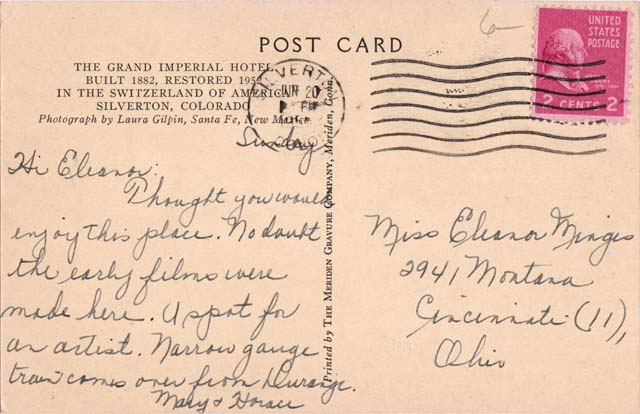 6-
POST CARD
UNITED STATES POSTAGE
2 CENTS 2
THE GRAND IMPERIAL HOTEL
BUILT 1882, RESTORED
IN THE SWITZERLAND OF AMERICA
SILVERTON, COLORADO
Photograph by Laura Gilpin, Santa Fe, New Mexico
SILVERTON
JUN 20
PM
COLO.
Printed by THE MERIDEN GRAVURE COMPANY, Meriden, Conn.
Sunday
Hi Eleanor:
Thought you would
enjoy this place. No doubt
the early films were
made here. A spot for
an artist. Narrow gauge
train comes over from Durango.
Mary & Horace
Miss Eleanor Minges
2941 Montana
Cincinnati (11),
Ohio